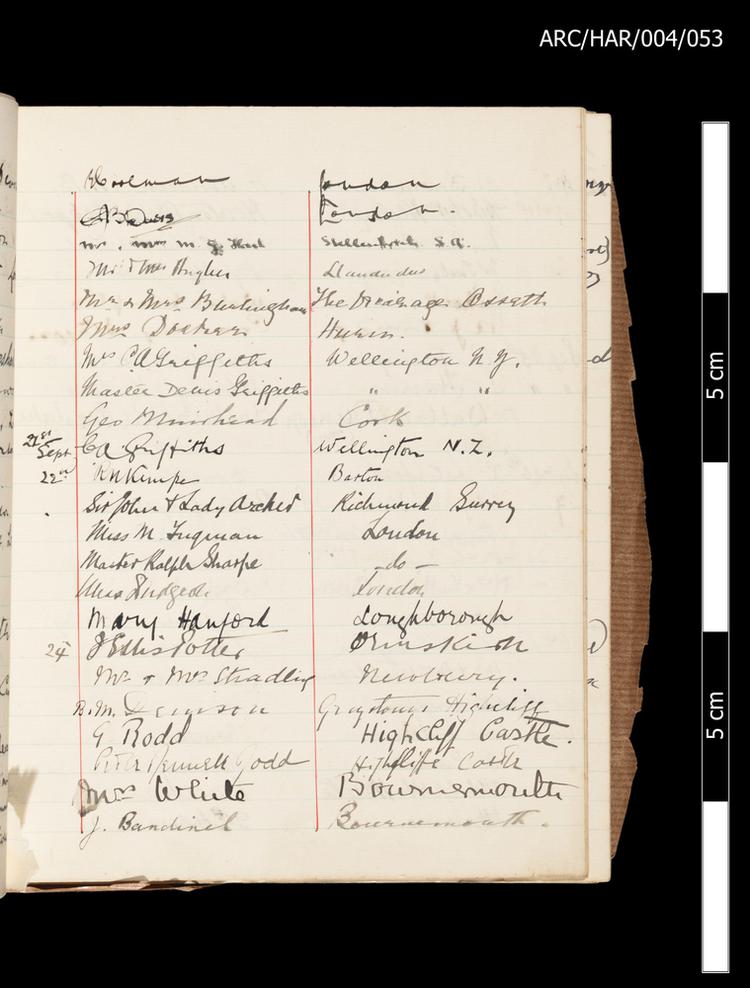 ARC/HAR/004/053
London
London.
Mr & Mrs M. J.
Mr & Mrs Hughes Llandudno
Mr & Mrs The Vicarage Ossett
Mrs
Mrs C A Griffiths Wellington N Z.
Master Denis Griffiths " "
Geo Muirhead Cork
21st Sept C A Griffiths Wellington N.Z.
22nd R N Kempe Barton
Sir John & Lady Archer Richmond Surrey
Miss M. Ingman London
Master Ralph Sharpe - do -
Miss London
Mary Hanford Loughborough
24 J Ellis Potter Ormskirk
Mr & Mrs Stradling Newbury.
B.M. Denison Greystones Highcliff
G Rodd Highcliff Castle.
Peter Rennell Rodd Highcliffe Castle
Mrs White Bournemouth
J. Bandinel Bournemouth.
5 cm
5 cm